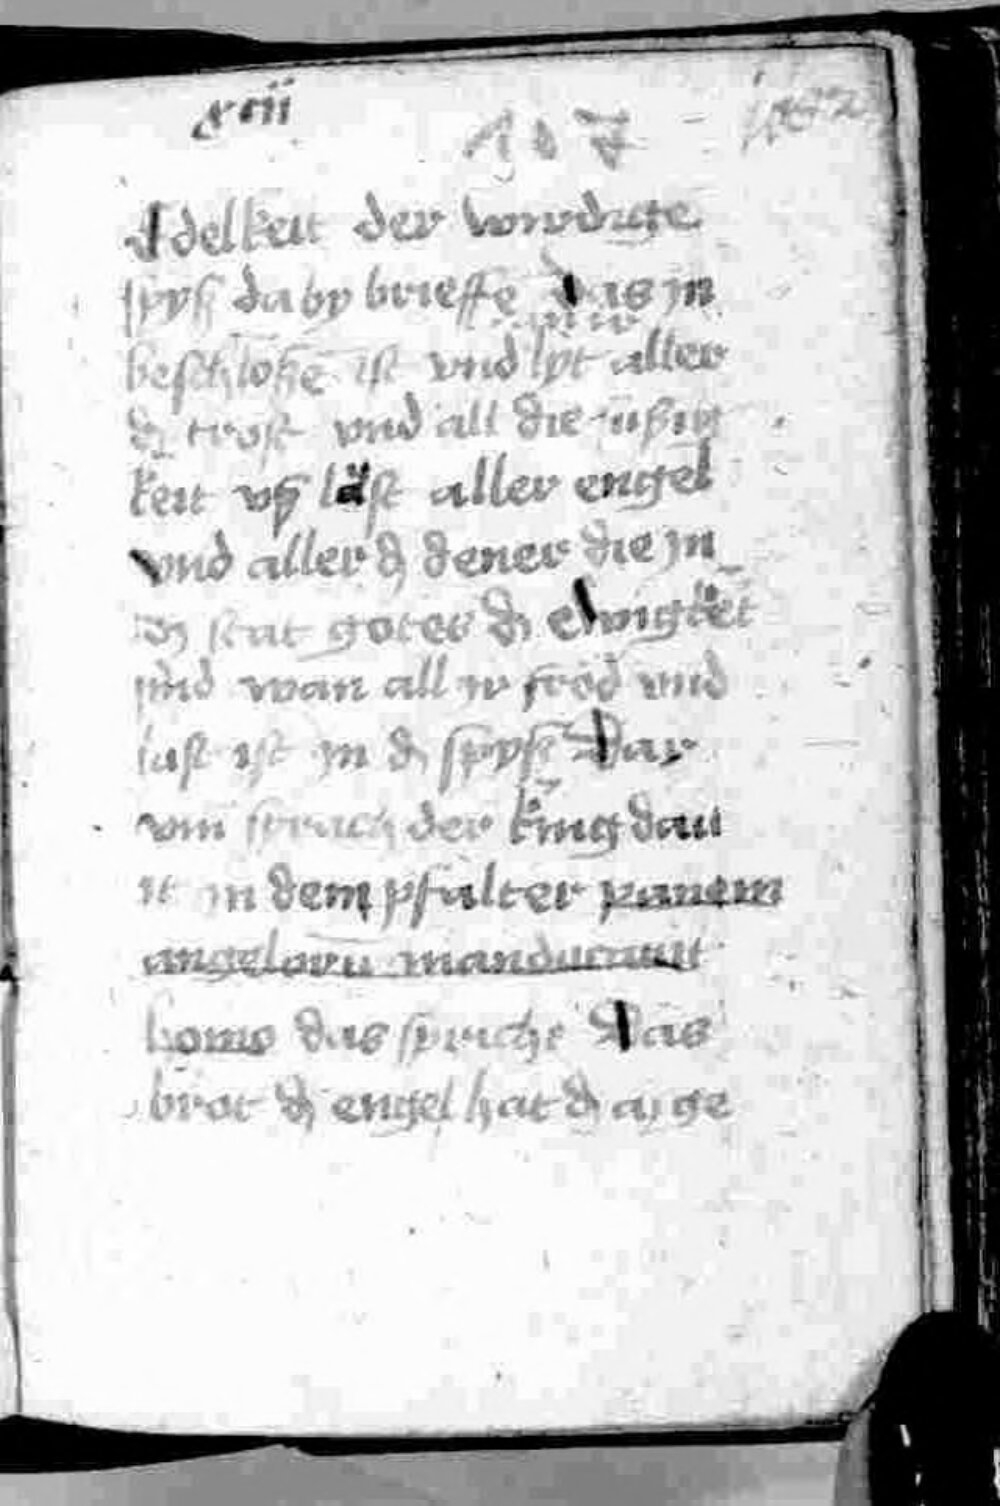 xcii
Adelkeit der wirdigē
spyß da by brieffe Das jn
beschloße ist vnd lyt aller
dz trost vnd all die süßig
keit vñ lust aller engel
vnd aller dz dener die jn
dz stat gotes dz ewigkeit
sind wan all ir fröd vnd
lust ist jn dz spyß Dar
vm sprach der king daui
t jn dem psalter panem
angelorū manducauit
homo das spricht Das
brot dz engel hat dz